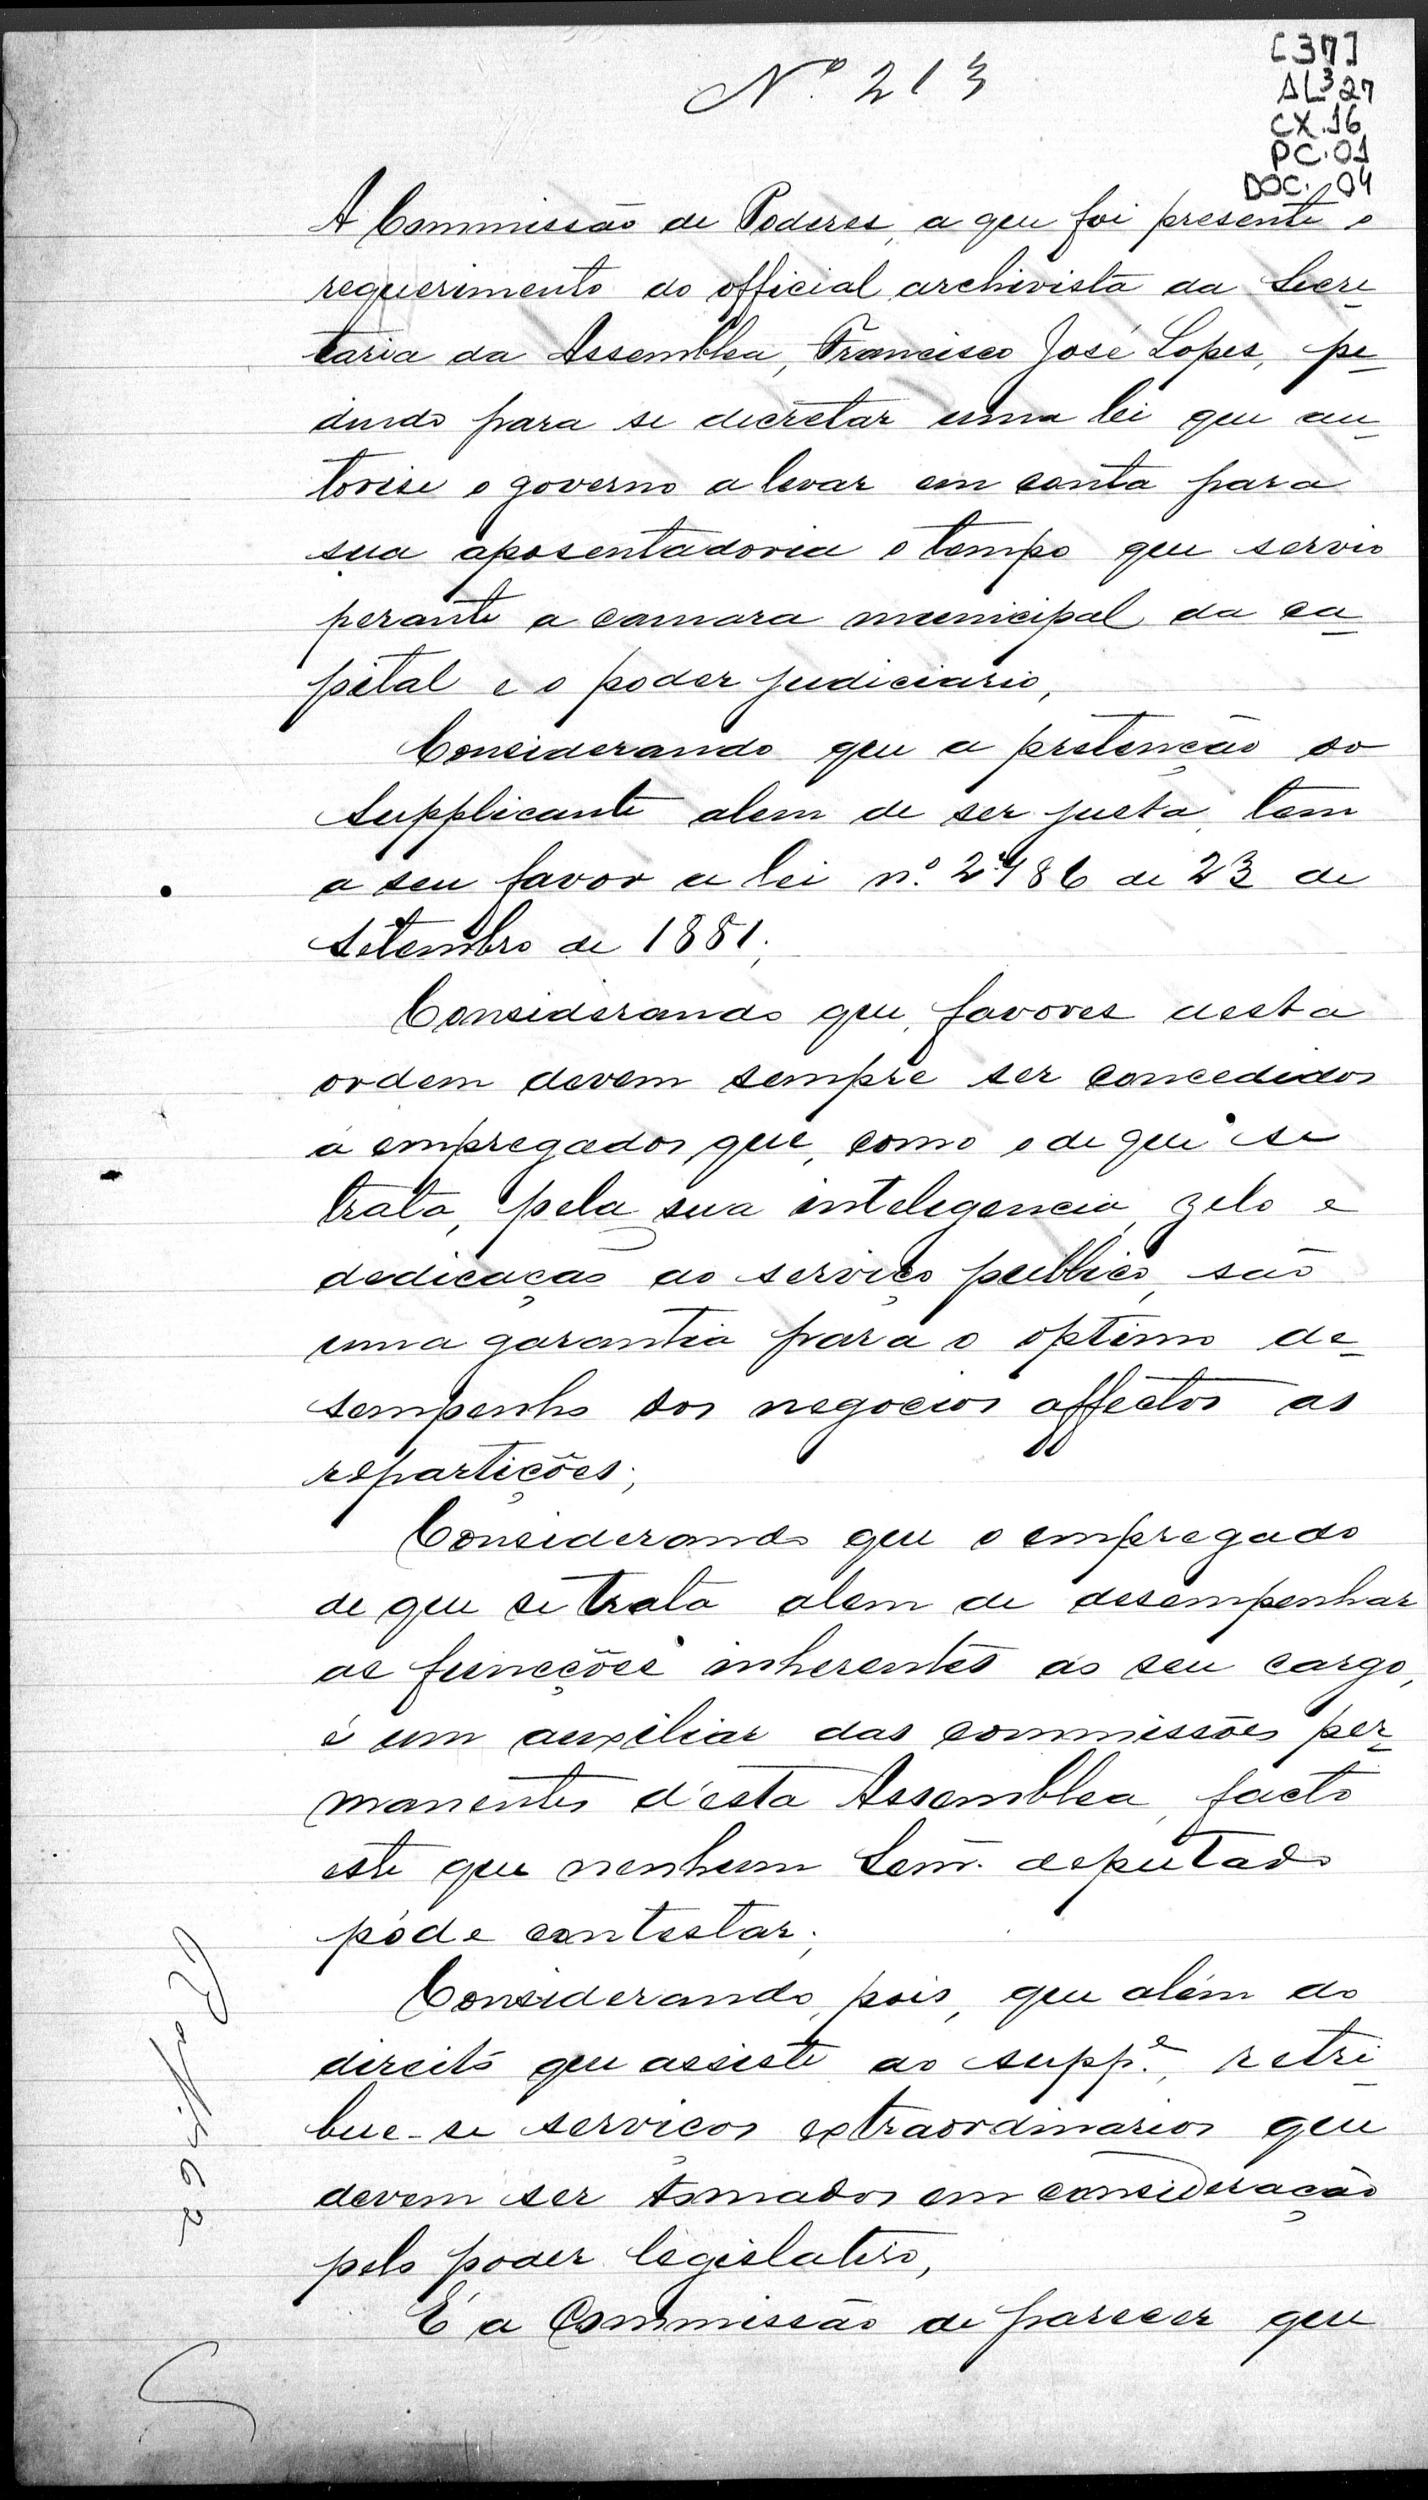 Nº 213
[37]
AL³27
CX.16
PC.01
DOC. 04
A Commissão de Poderes, a que foi presente o
requerimento do official archivista da Secre-
taria da Assemblea, Francisco José Lopes, pe-
dindo para se decretar uma lei que au-
torise o governo a levar em conta para
sua aposentadoria o tempo que servio
perante a camara municipal da ca-
pital e o poder judiciario,
Considerando que a pretenção do
Supplicante alem de ser justa, tem
a seu favor a lei nº 2:486 de 23 de
Setembro de 1881;
Considerando que, favores desta
ordem devem sempre ser concedidos
á empregados que, como o de que se
trata, pela sua inteligencia, zelo e
dedicação ao serviço publico, são
uma garantia para o optimo de-
sempenho dos negocios affectos as
repartições;
Considerando que o empregado
de que se trata alem de desempenhar
as funcções inherentes ao seu cargo,
é um auxiliar das commissões per-
manentes d'esta Assemblea, facto
este que nenhum Senr. deputado
póde contestar;
Considerando, pois, que além do
direito que assiste ao suppe., retri-
bue-se serviços extraordinarios que
devem ser tomados em consideração
pelo poder legislativo,
É a Commissão de parecer que